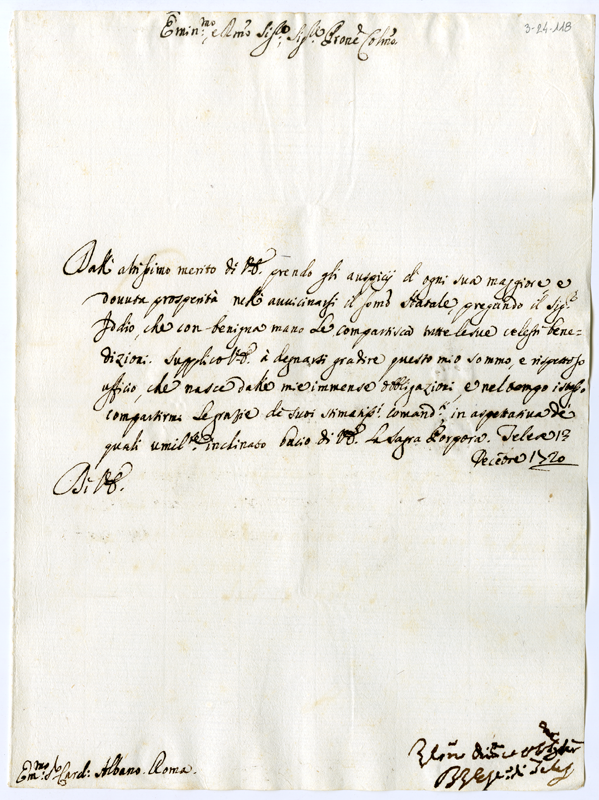 3-24-118
Emin.mo, e Rmo Sig.re, Sig.re Prone Colmo
Dall' altissimo merito di V.E. prendo gli auspicij d' ogni sua maggiore e
dovuta prosperità nell' avvicinarsi il Sonto Natale, pregando il Sig.re
Iddio, che con benigna mano Le compartisca tutte le sue celesti bene-
dizioni. Supplico V.E. à degnarsi gradire questo mio sommo, e rispettoso
ufficio, che nasce dalle mie immense obbligazioni, e nel tempo istesso
compartirmi Le grazie de suoi stimatiss.i comand.i in aspettativa de
quali umil.te inclinato bacio di V.E. La Sagra Porpora. Telese 13
Decebre 1720
Di V.E.
Em.mo S.r Card: Albano. Roma.
di Telese